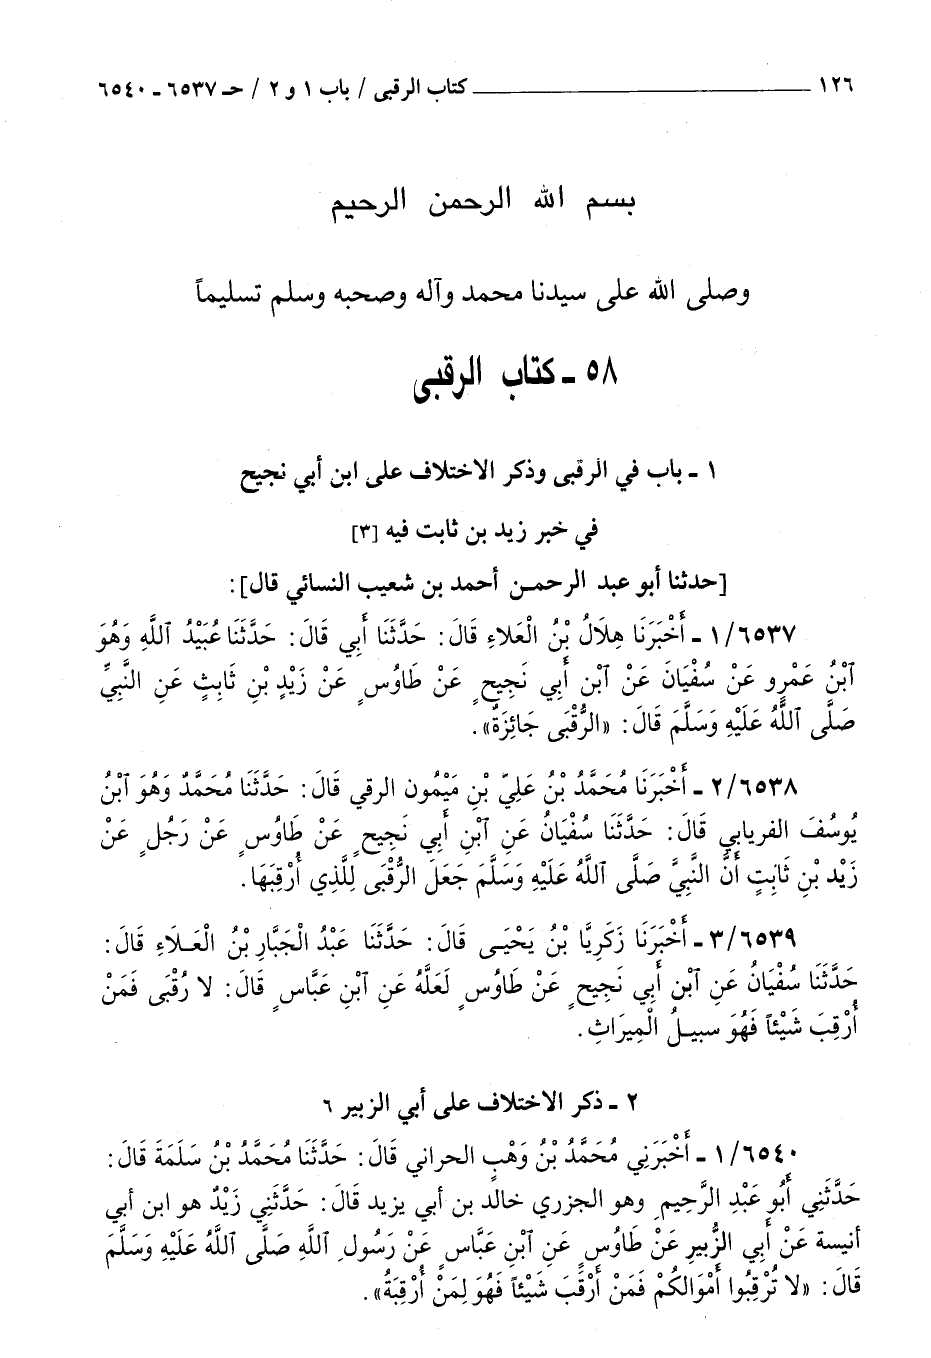 ١٢٦ ـــــــــــــ كتاب الرقبى / باب ١ و ٢ / حـ ٦٥٣٧ ـ ٦٥٤٠
بسم الله الرحمن الرحيم
وصلى الله على سيدنا محمد وآله وصحبه وسلم تسليماً
٥٨ ـ كتاب الرقبى
١ ـ باب في الرقبى وذكر الاختلاف على ابن أبي نجيح
في خبر زيد بن ثابت فيه [٣]
[حدثنا أبو عبد الرحمن أحمد بن شعيب النسائي قال]:
١/٦٥٣٧ ـ أَخْبَرَنَا هِلَالُ بْنُ الْعَلَاءِ قَالَ: حَدَّثَنَا أَبِي قَالَ: حَدَّثَنَا عُبَيْدُ اللَّهِ وَهُوَ
ابْنُ عَمْرٍو عَنْ سُفْيَانَ عَنْ ابْنِ أَبِي نَجِيحٍ عَنْ طَاوُسٍ عَنْ زَيْدِ بْنِ ثَابِتٍ عَنِ النَّبِيِّ
صَلَّى اللَّهُ عَلَيْهِ وَسَلَّمَ قَالَ: «الرُّقْبَى جَائِزَةٌ».
٢/٦٥٣٨ ـ أَخْبَرَنَا مُحَمَّدُ بْنُ عَلِيِّ بْنِ مَيْمُون الرقي قَالَ: حَدَّثَنَا مُحَمَّدٌ وَهُوَ ابْنُ
يُوسُفَ الفريابي قَالَ: حَدَّثَنَا سُفْيَانُ عَنِ ابْنِ أَبِي نَجِيحٍ عَنْ طَاوُسٍ عَنْ رَجُلٍ عَنْ
زَيْد بْنِ ثَابِتٍ أَنَّ النَّبِيَّ صَلَّى اللَّهُ عَلَيْهِ وَسَلَّمَ جَعَلَ الرُّقْبَى لِلَّذِي أُرْقِبَهَا.
٣/٦٥٣٩ ـ أَخْبَرَنَا زَكَرِيَّا بْنُ يَحْيَى قَالَ: حَدَّثَنَا عَبْدُ الْجَبَّارِ بْنُ الْعَلَاءِ قَالَ:
حَدَّثَنَا سُفْيَانُ عَنِ ابْنِ أَبِي نَجِيحٍ عَنْ طَاوُسٍ لَعَلَّهُ عَنِ ابْنِ عَبَّاسٍ قَالَ: لا رُقْبَى فَمَنْ
أُرْقِبَ شَيْئاً فَهُوَ سبيلُ الْمِيرَاثِ.
٢ ـ ذكر الاختلاف على أبي الزبير ٦
١/٦٥٤٠ ـ أَخْبَرَنِي مُحَمَّدُ بْنُ وَهْبٍ الحراني قَالَ: حَدَّثَنَا مُحَمَّدُ بْنُ سَلَمَةَ قَالَ:
حَدَّثَنِي أَبُو عَبْدِ الرَّحِيمِ وهو الجزري خالد بن أبي يزيد قَالَ: حَدَّثَنِي زَيْدٌ هو ابن أبي
أنيسة عَنْ أَبِي الزُّبَيْرِ عَنْ طَاوُسٍ عَنِ ابْنِ عَبَّاسٍ عَنْ رَسُولِ اللَّهِ صَلَّى اللَّهُ عَلَيْهِ وَسَلَّمَ
قَالَ: «لا تُرْقِبُوا أَمْوَالكُمْ فَمَنْ أَرْقَبَ شَيْئاً فَهُوَ لِمَنْ أُرْقِبَهُ».